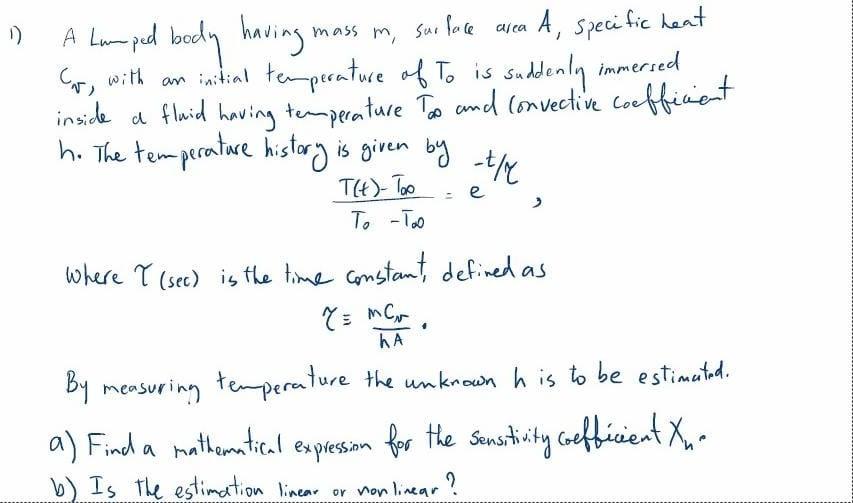 1) A Lumped body having mass m, surface area A, specific heat
Cv, with an initial temperature of T₀ is suddenly immersed
inside a fluid having temperature T∞ and convective coefficient
h. The temperature history is given by
(T(t) - T∞) / (T₀ - T∞) = e^(-t/τ),
where τ (sec) is the time constant, defined as
τ ≡ mCv / hA.
By measuring temperature the unknown h is to be estimated.
a) Find a mathematical expression for the sensitivity coefficient Xₕ.
b) Is the estimation linear or nonlinear?